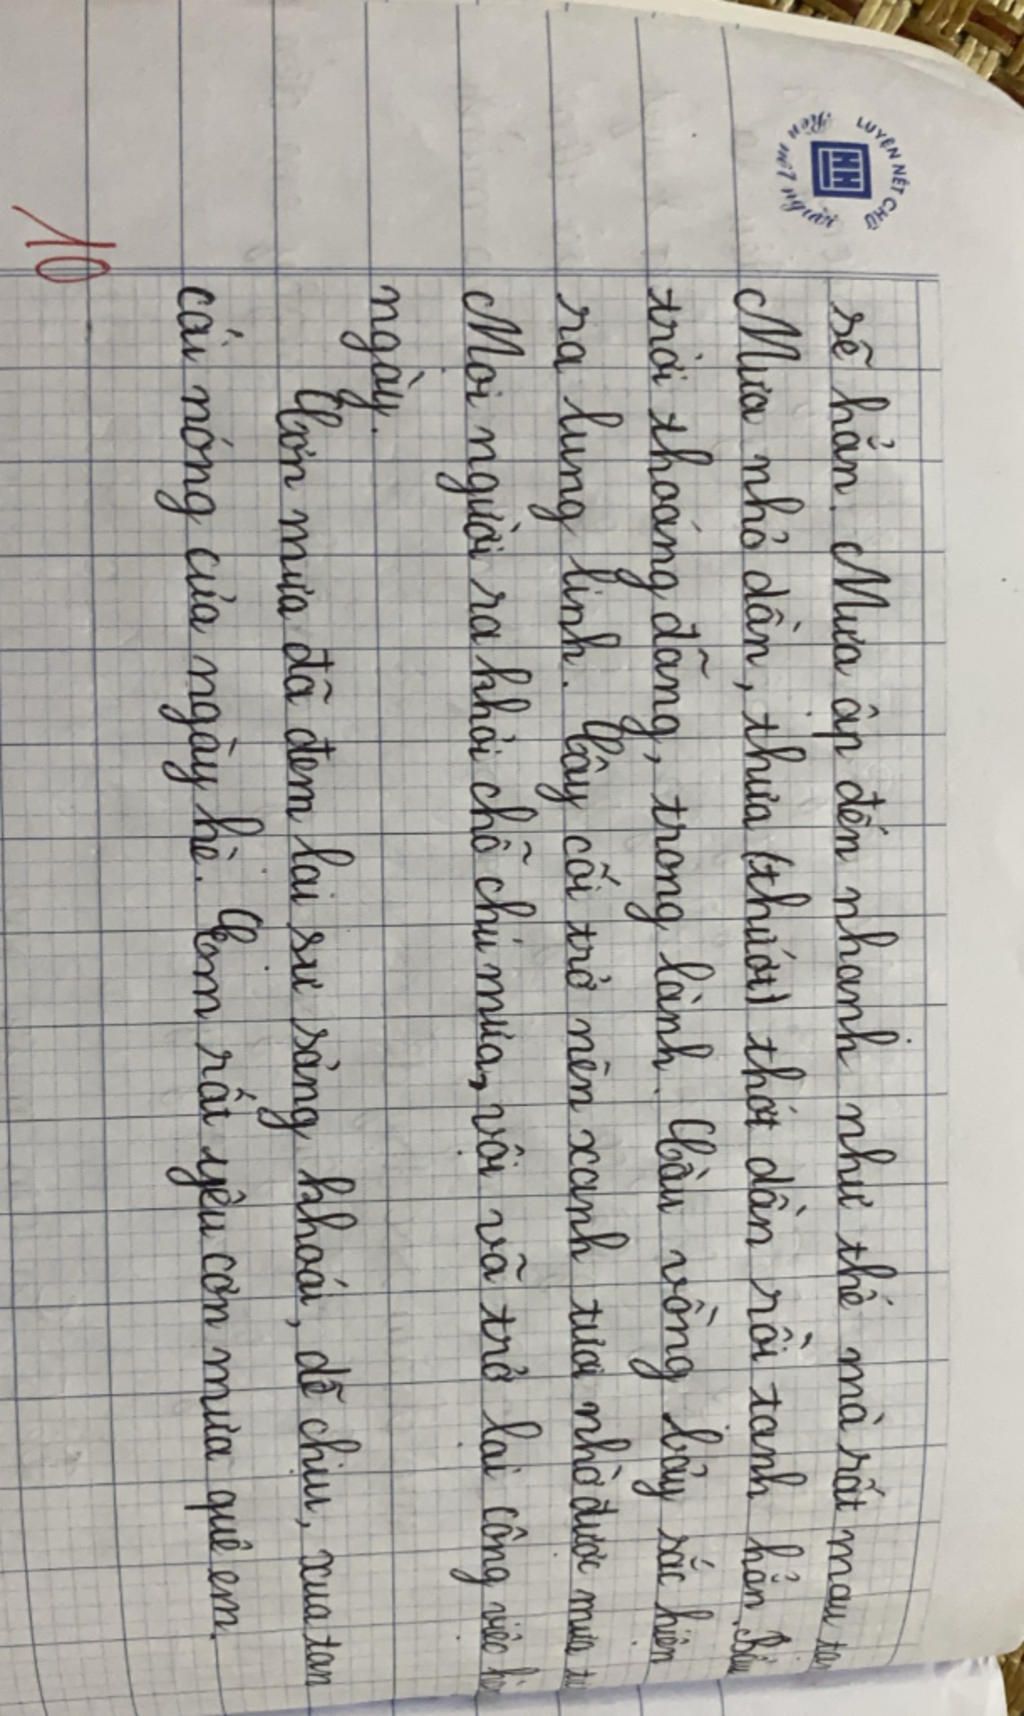 LUYỆN NÉT CHỮ
Rèn nết người
HN
rẽ hẳn. Mưa ập đến nhanh như thế mà rất mau
Mưa nhỏ dần, thưa (thướt) thớt dần rồi tạnh hẳn. Bầu
trời thoáng đãng, trong lành. Cầu vồng bảy sắc hiện
ra lung linh. Cây cối trở nên xanh tươi nhờ được mưa
Mọi người ra khỏi chỗ chú mưa, vội vã trở lại công việc
ngày.
Cơn mưa đã đem lại sự sảng khoái, dễ chịu, xua tan
cái nóng của ngày hè. Em rất yêu cơn mưa quê em.
10